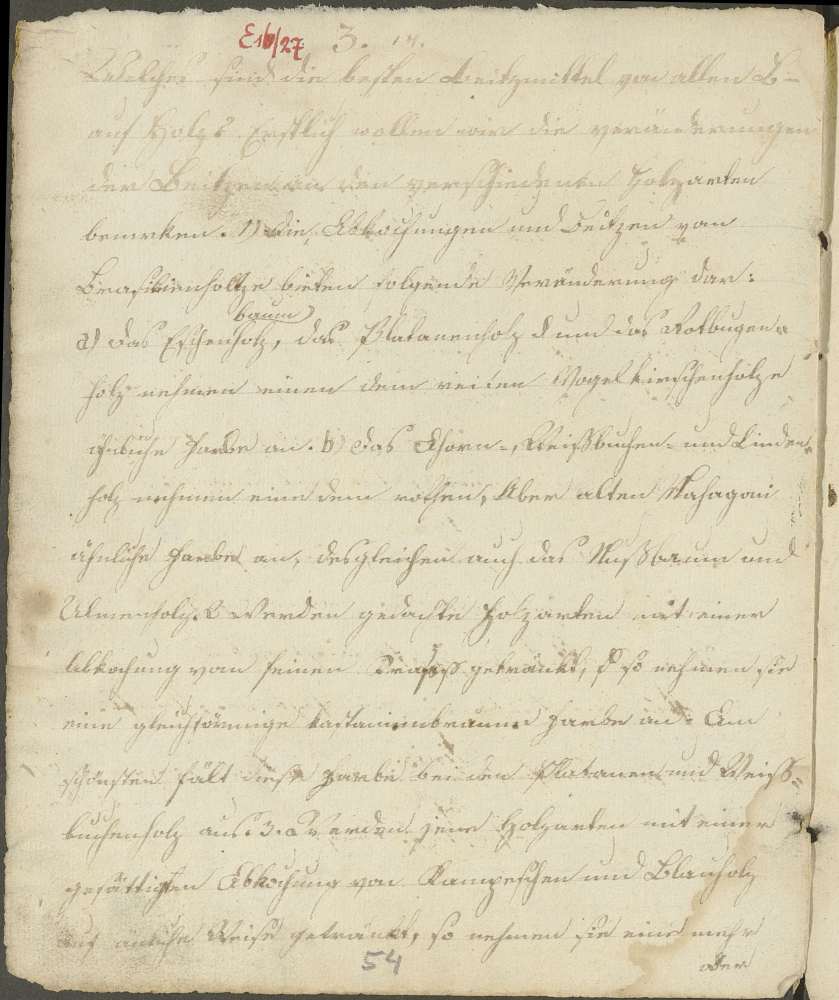 E16/27 3. 14.
Welches sind die besten Beitzmittel von allen B-
auf Holz? Erstlich wollen wir die Veränderungen
der Beitzen an den verschiedenen Holzarten
bemerken. 1) Die Abkochungen und Beitzen von
Brasilienholtze bieten folgende Veränderung dar:
baum
a) Das Eschenholz, das Platanenholz und das Rotbugen=
holz nehmen einen dem reifen Vogelkirschenholze
ähnliche Farbe an. b) Das Ahorn=, Weißbuchen= und Linden=
holz nehmen eine dem rothen, Aber alten Mahagoni
ähnliche Farbe an, desgleichen auch das Nußbaum und
Ulmenholz. 2 Werden gedachte Holzarten mit einer
Abkochung von feinen getränkt, so nehmen sie
eine gleichförmige kastanienbraune Farbe an. Am
schönsten fält diese Farbe bei den Platanen und Weiß=
buchenholz aus. 3. Werden jene Holzarten mit einer
gesättigten Abkochung von Kampeschen und Blauholz
auf änliche Weise getränkt, so nehmen sie eine mehr
oder
54